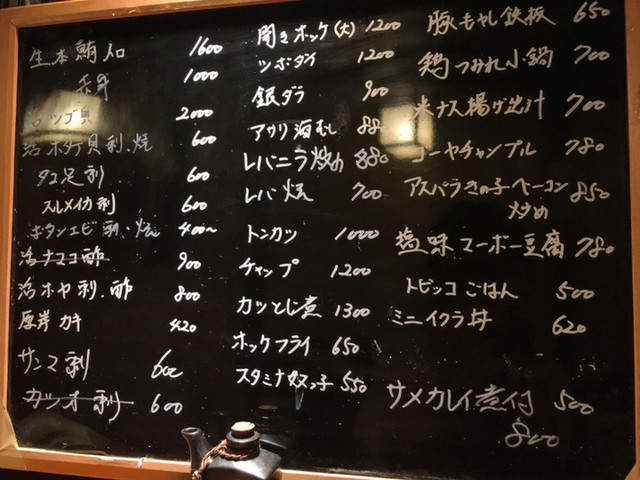 生本鮪 トロ 1600
赤身 1000
活ツブ貝 2000
活ホタテ貝 刺、焼 600
タコ足刺 600
スルメイカ刺 600
ボタンエビ 刺、焼 400〜
活ナマコ酢 900
活ホヤ 刺、酢 800
厚岸カキ 420
サンマ刺 600
カツオ刺 600
開きホッケ(大) 1200
ツボダイ 1200
銀ダラ 900
アサリ酒むし 880
レバニラ炒め 880
レバ焼 700
トンカツ 1000
チャップ 1200
カツとじ煮 1300
ホックフライ 650
スタミナ奴っ子 550
豚もやし鉄板 650
鶏つみれ小鍋 700
米ナス揚げ出汁 700
ゴーヤチャンプル 780
アスパラきの子ベーコン 850
炒め
塩味マーボー豆腐 780
トビッコごはん 500
ミニイクラ丼 620
サメカレイ煮付 500
800